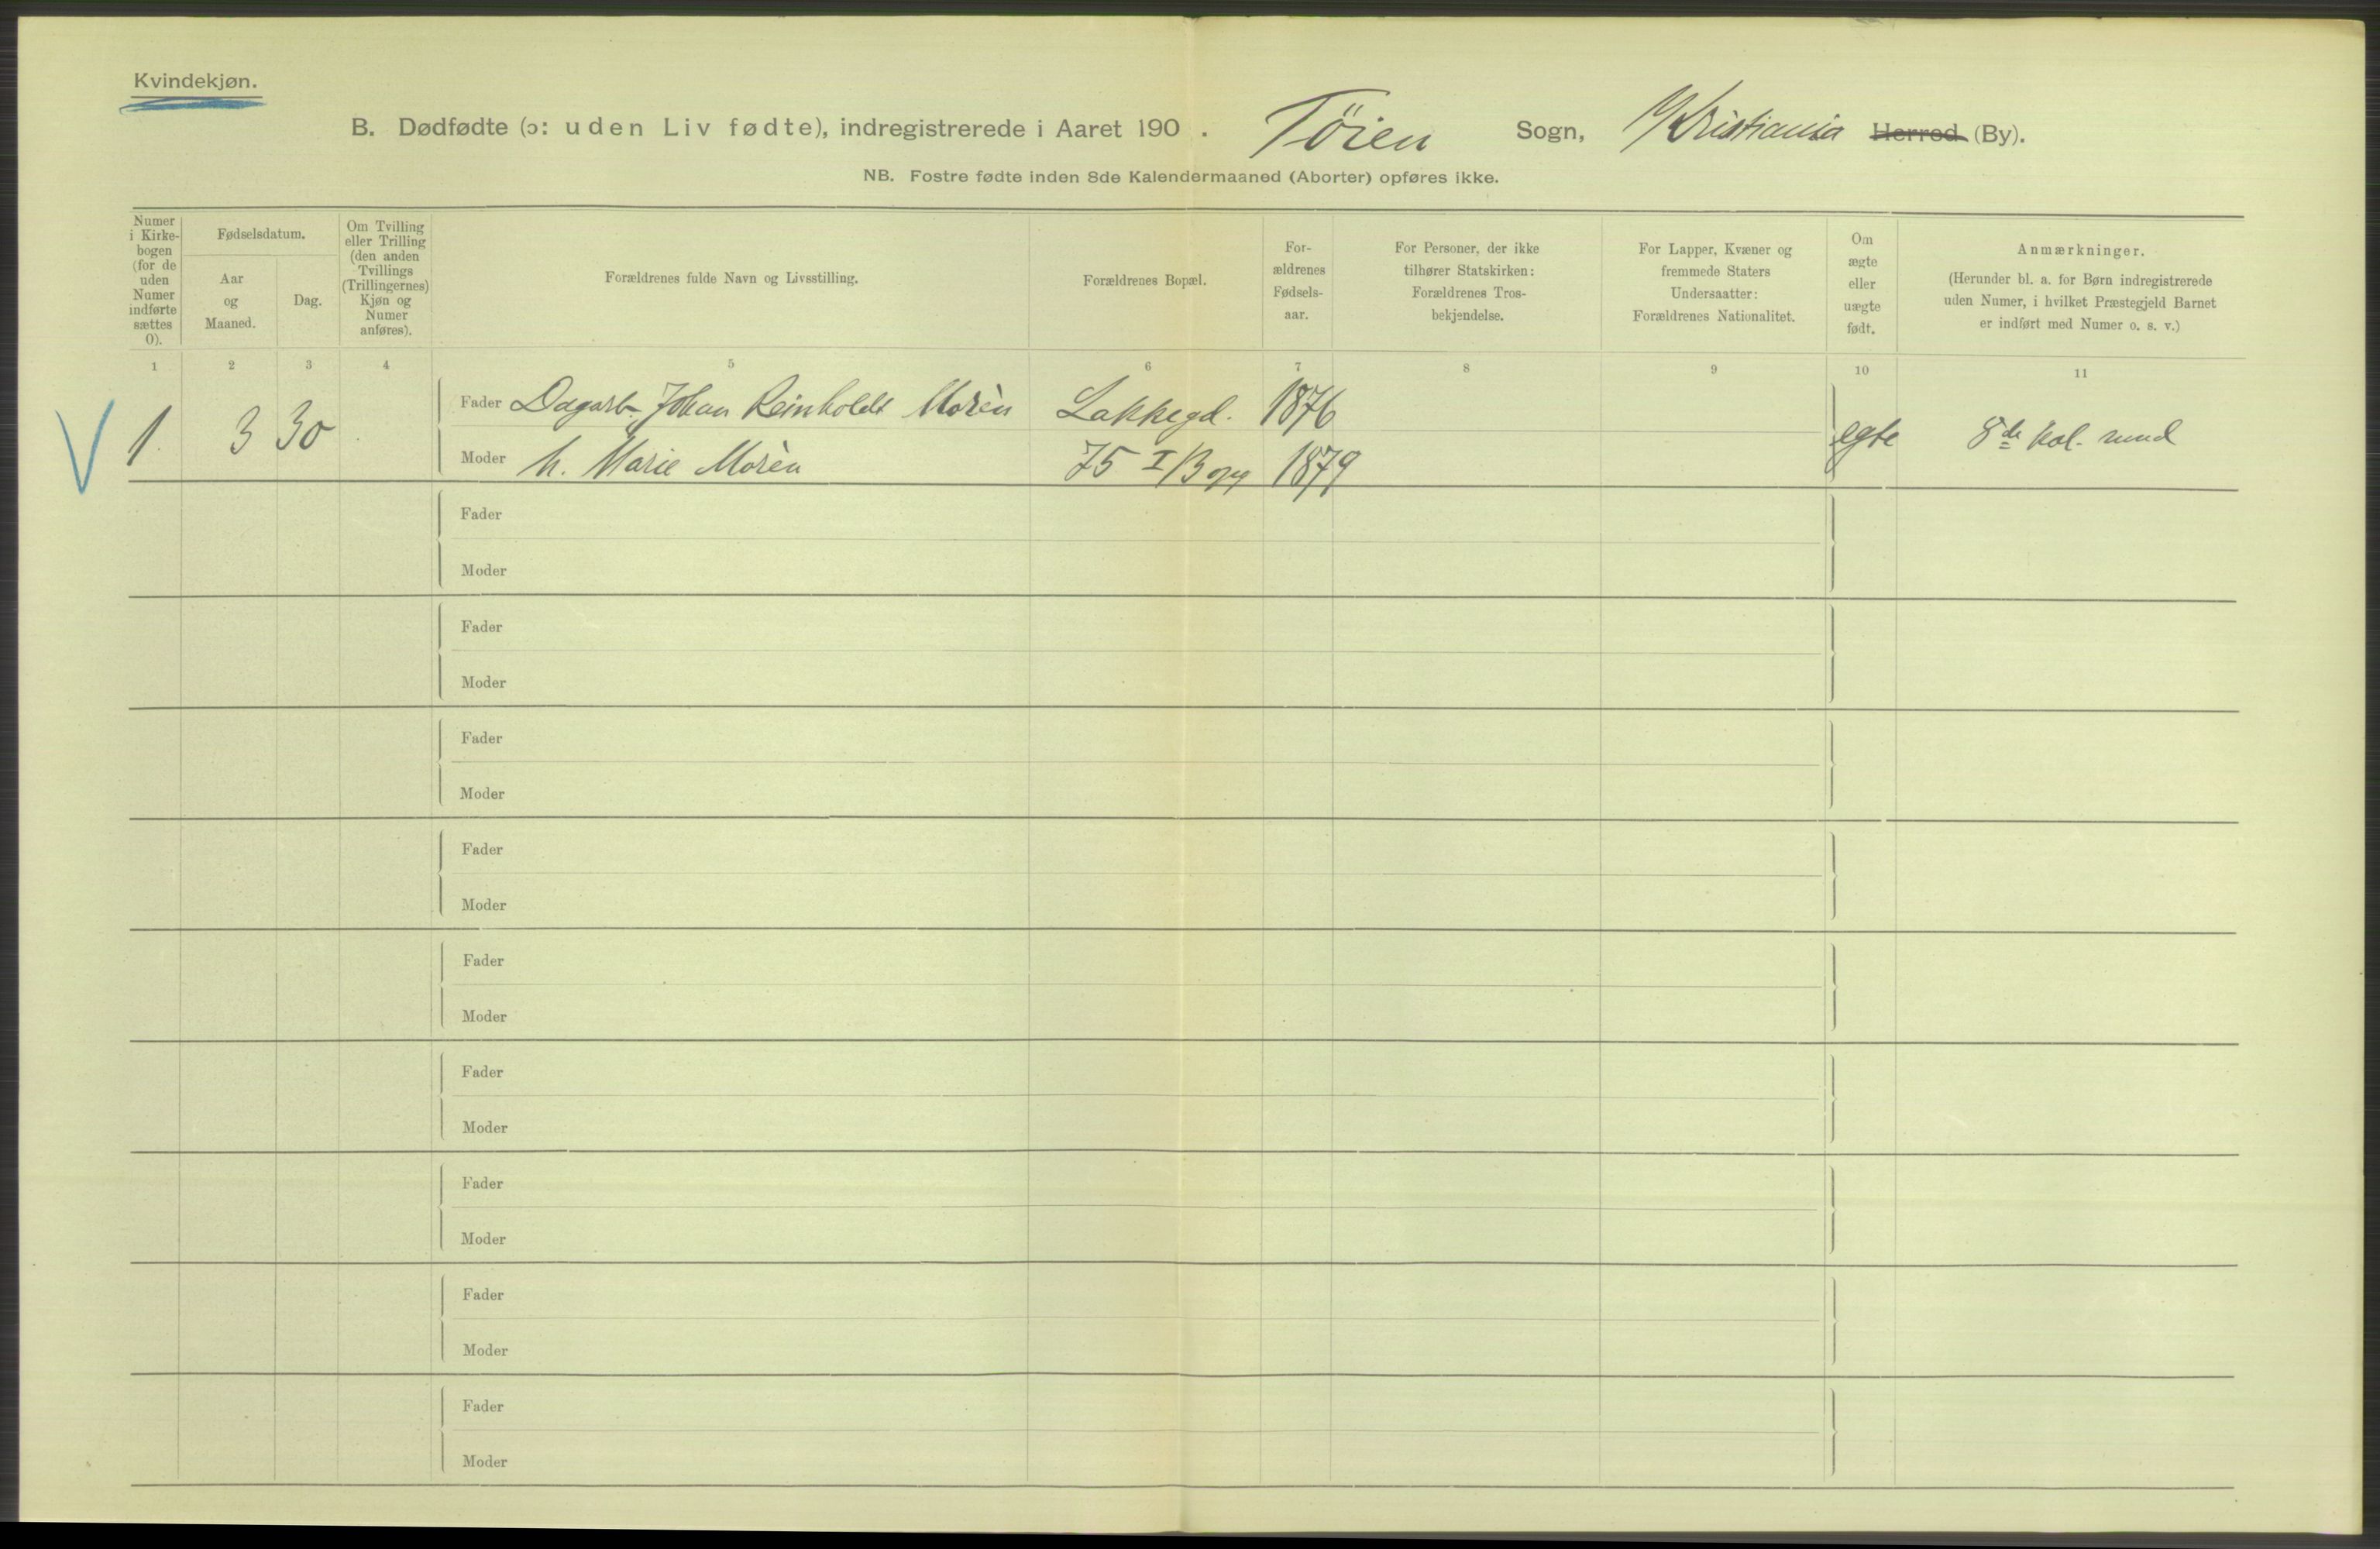 Kvindekjøn.
B. Dødfødte (ɔ: uden Liv fødte), indregistrerede i Aaret 190 . Töien Sogn, Kristiania Herred (By).
NB. Fostre fødte inden 8de Kalendermaaned (Aborter) opføres ikke.
Numer
i Kirke-
bogen
(for de
uden
Numer
indførte
sættes
0).
Fødselsdatum.
Aar
og
Maaned.
Dag.
Om Tvilling
eller Trilling
(den anden
Tvillings
(Trillingernes)
Kjøn og
Numer
anføres).
Forældrenes fulde Navn og Livsstilling.
Forældrenes Bopæl.
For-
ældrenes
Fødsels-
aar.
For Personer, der ikke
tilhører Statskirken:
Forældrenes Tros-
bekjendelse.
For Lapper, Kvæner og
fremmede Staters
Undersaatter:
Forældrenes Nationalitet.
Om
ægte
eller
uægte
født.
Anmærkninger.
(Herunder bl. a. for Børn indregistrerede
uden Numer, i hvilket Præstegjeld Barnet
er indført med Numer o. s. v.)
1 2 3 4 5 6 7 8 9 10 11
Fader Dagarb. Johan Reinholdt Morèn Lakkegd. 1876
1. 3 30 egte 8de kal. mnd
Moder h. Marie Morèn 75 I/B opg 1879
Fader
Moder
Fader
Moder
Fader
Moder
Fader
Moder
Fader
Moder
Fader
Moder
Fader
Moder
Fader
Moder
Fader
Moder